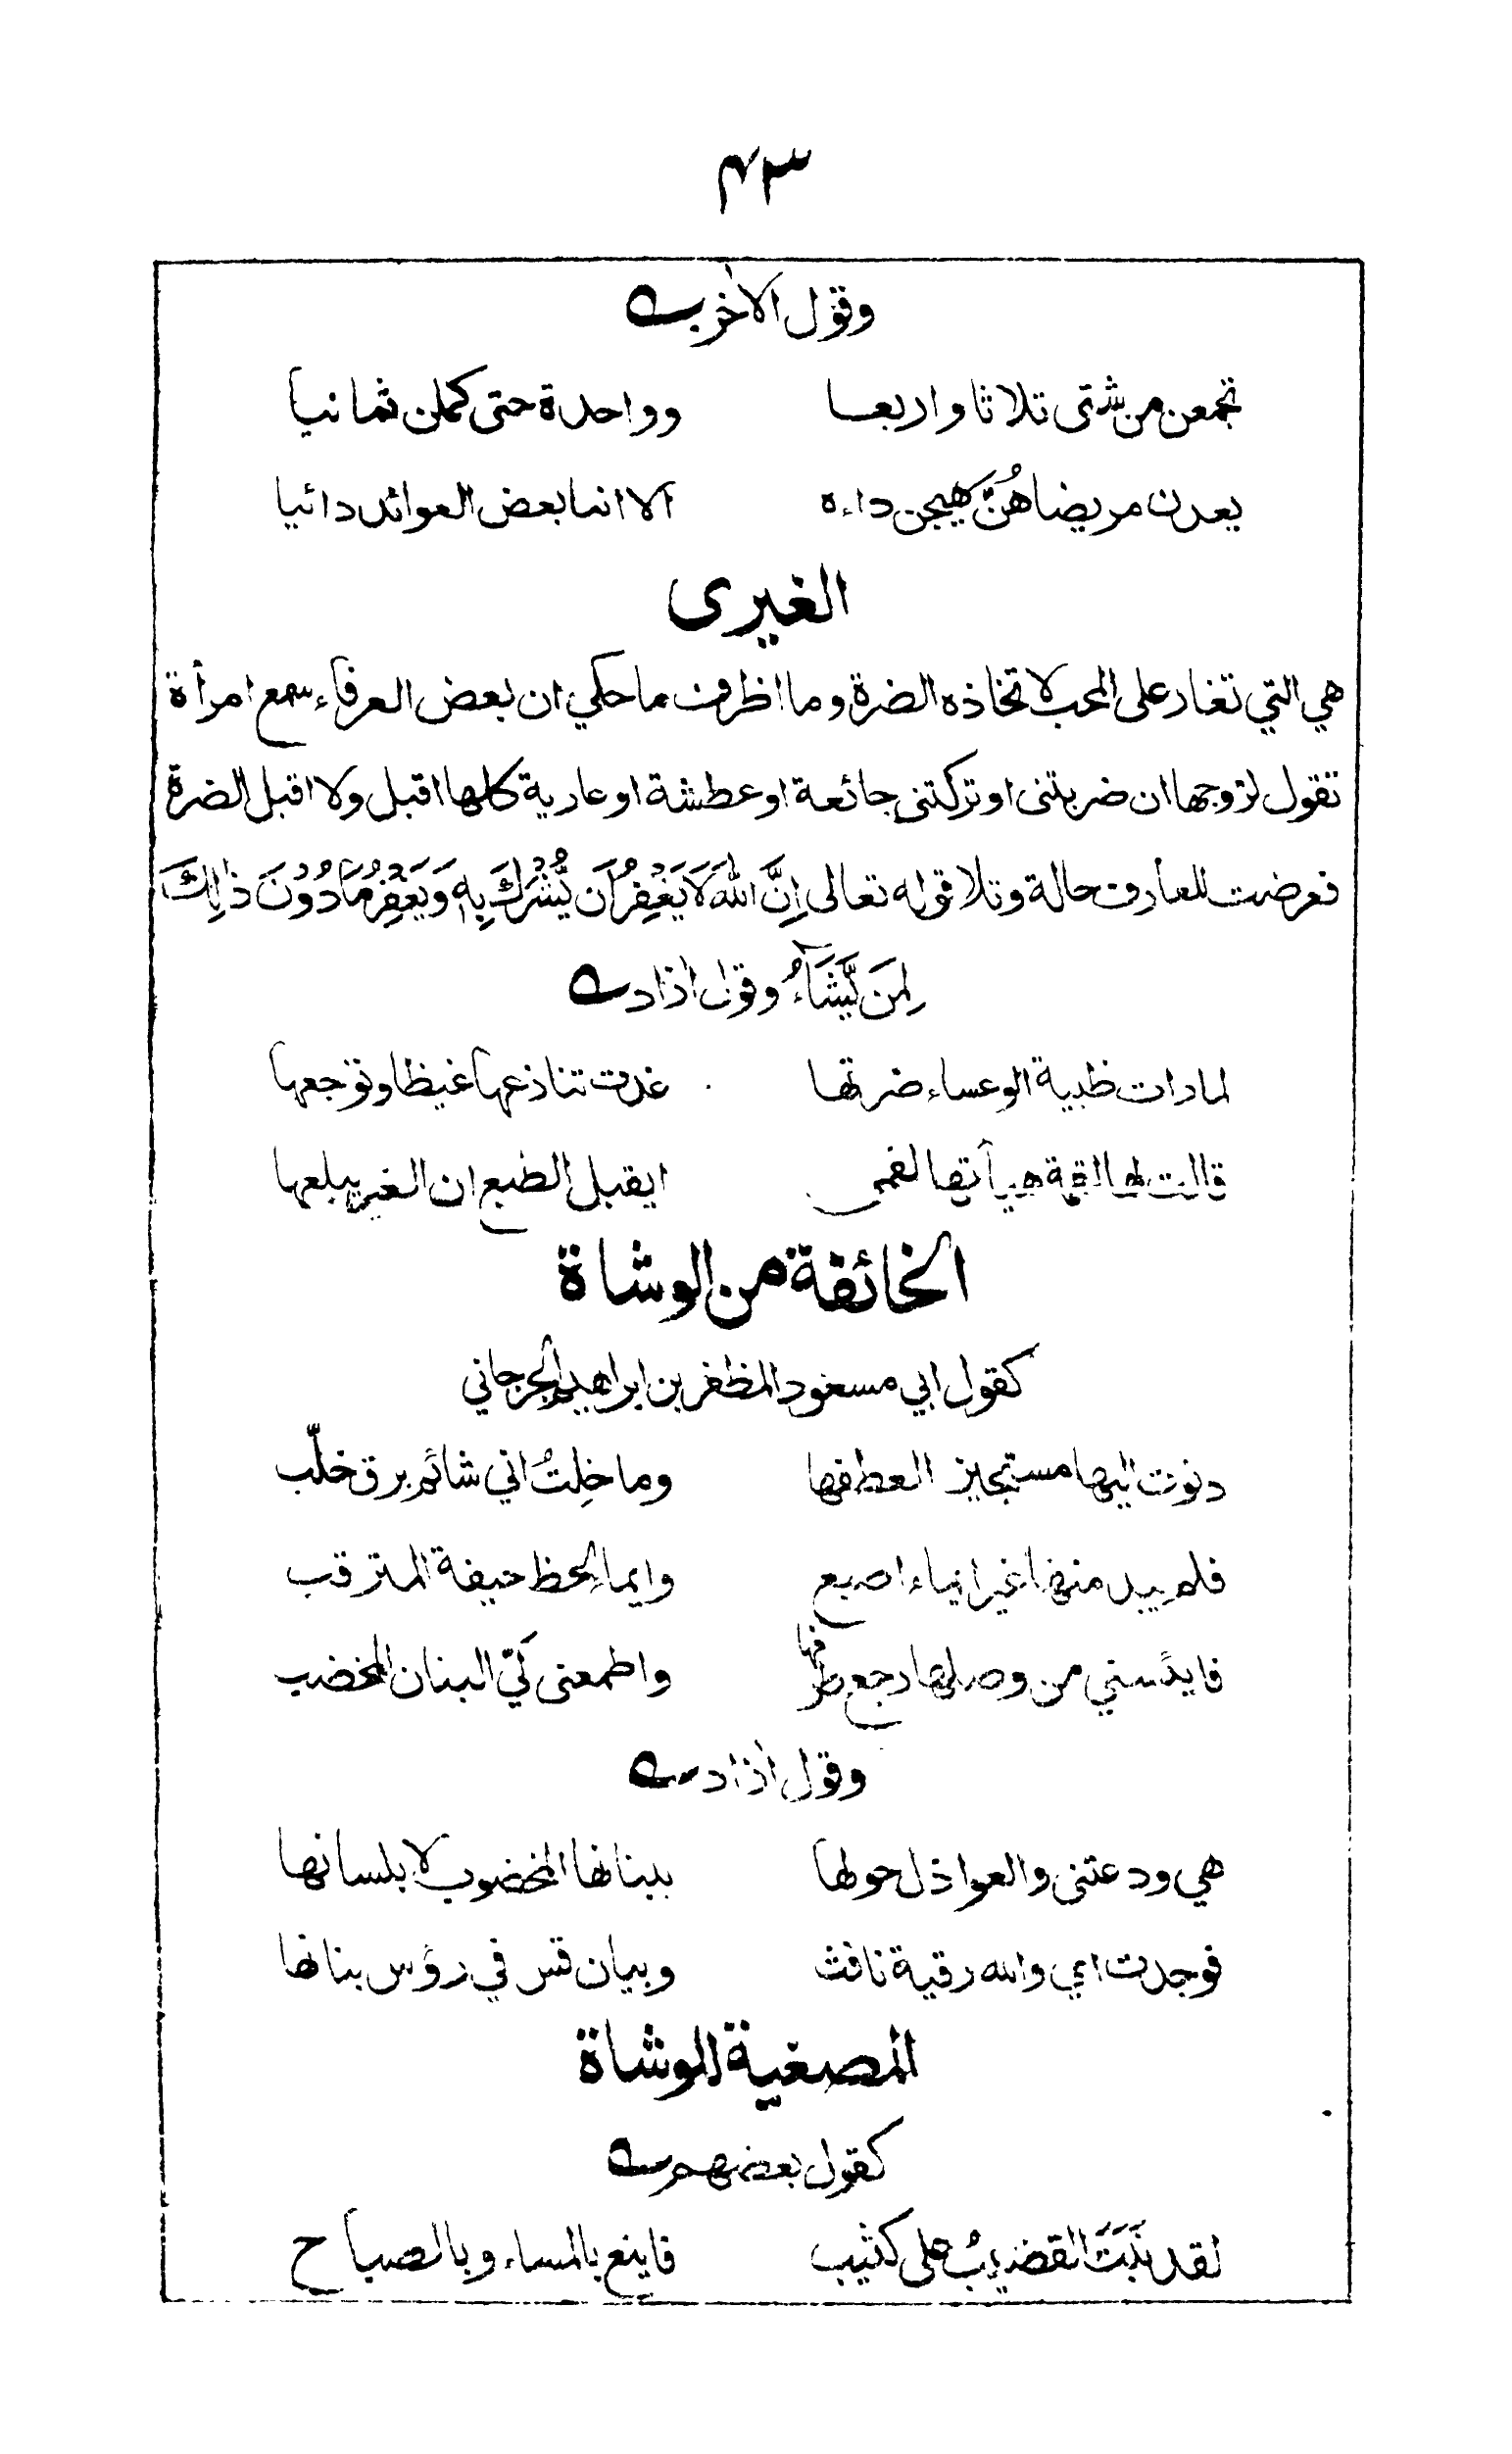 ۴۳
وقول الاخر
تجمعن من شتى ثلاثا واربعا ووواحدة حتى كملن ثمانيا
يعدن مريضا هُنَّ هيجن داءه الا انما بعض العوائد دائيا
الغيرى
هي التي تغار على المحب لاتخاذه الضرة وما اظرف ما حكي ان بعض العرفاء سمع امرأة
تقول لزوجها ان ضربتنى او تركتنى جائعة او عطشة او عارية كلها اقبل ولا اقبل الضرة
فعرضت للعارف حالة وتلا قوله تعالى اِنَّ اللهَ لَا يَغْفِرُ اَن يُّشْرَكَ بِهٖ وَيَغْفِرُ مَا دُوْنَ ذٰلِكَ
لِمَن يَّشَآءُ وقول اٰزاد
لما رات ظبية الوعساء ضرتها غدت تنازعها غيظا وتوجعها
قالت لها لقمة هيأتها لفمى ايقبل الطبع ان الغير يبلعها
الخائفة من الوشاة
كقول ابي مسعود المظفر بن ابراهيم الجرجاني
دنوت اليها مستجيز العطفها وما خِلتُ اني شائم برق خلّب
فلم يبد منها غير ايماء اصبع وايما لحظ خيفة المترقب
فايئسني من وصلها رجع طرفها واطمعنى ليّ البنان المخضب
وقول اٰزاد
هي ودعتنى والعواذل حولها ببنانها المخضوب لا بلسانها
فوجدت اي والله رقية نافث وبيان قس في رؤس بنانها
المصغية للوشاة
كقول بعضهم
لقد نَبَتَ القضيبُ على كثيب فاينع بالمساء وبالصباح